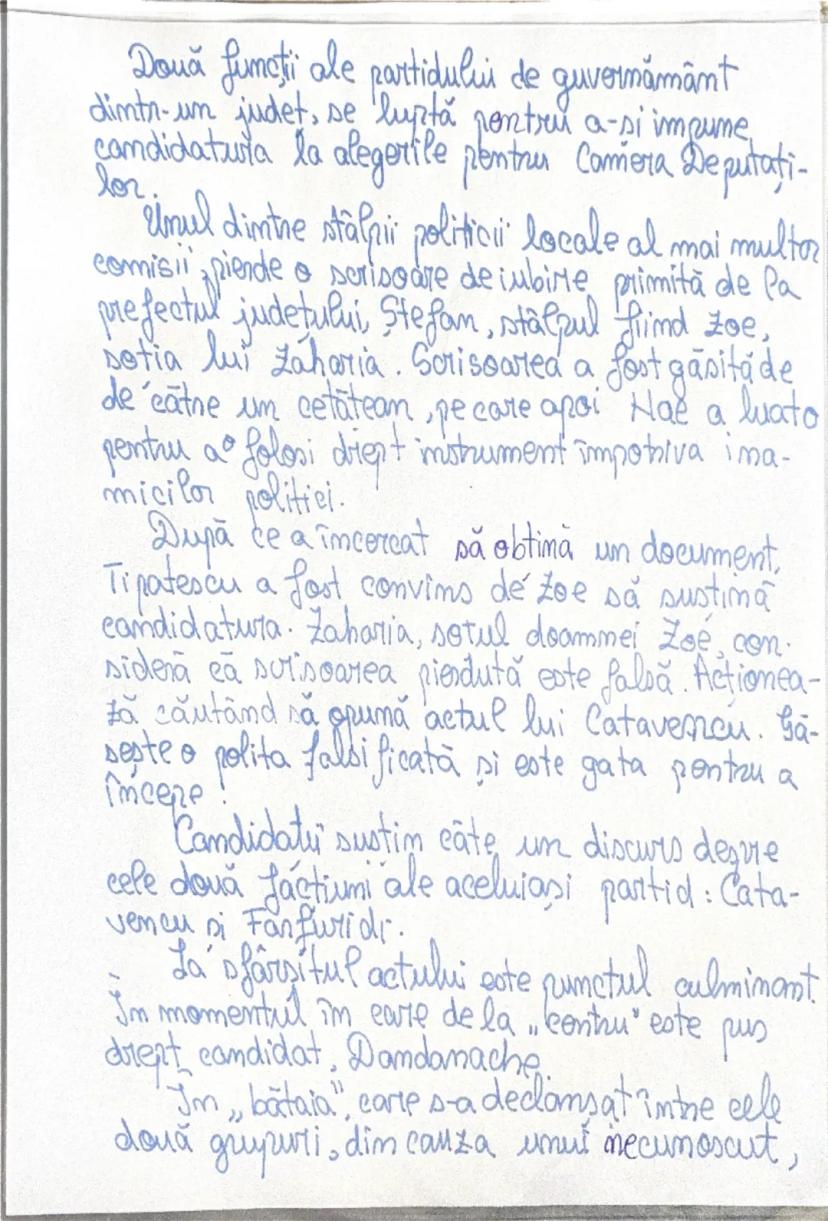 Două funcții ale partidului de guvernământ
dintr-un județ, se luptă pentru a-și impune
candidatura la alegerile pentru Camera Deputați-
lor.
Unul dintre stâlpii politicii locale al mai multor
comisii, pierde o scrisoare de iubire primită de la
prefectul județului, Ștefan, stâlpul fiind Zoe,
soția lui Zaharia. Scrisoarea a fost găsită de
de către un cetățean, pe care apoi Nae a luato
pentru a o folosi drept instrument împotriva ina-
micilor politici.
După ce a încercat să obțină un document,
Tipatescu a fost convins de Zoe să susțină
candidatura. Zaharia, soțul doamnei Zoe, con-
sideră că scrisoarea pierdută este falsă. Acționea-
ză căutând să opună actul lui Catavencu. Gă-
sește o polita falsificată și este gata pentru a
începe.
Candidații susțin câte un discurs despre
cele două facțiuni ale aceluiași partid: Cata-
vencu și Fanfuridi.
La sfârșitul actului este punctul culminant.
În momentul în care de la „centru" este pus
drept candidat, Dandanache.
În „bătaia", care s-a declanșat între cele
două grupuri, din cauza unui necunoscut,